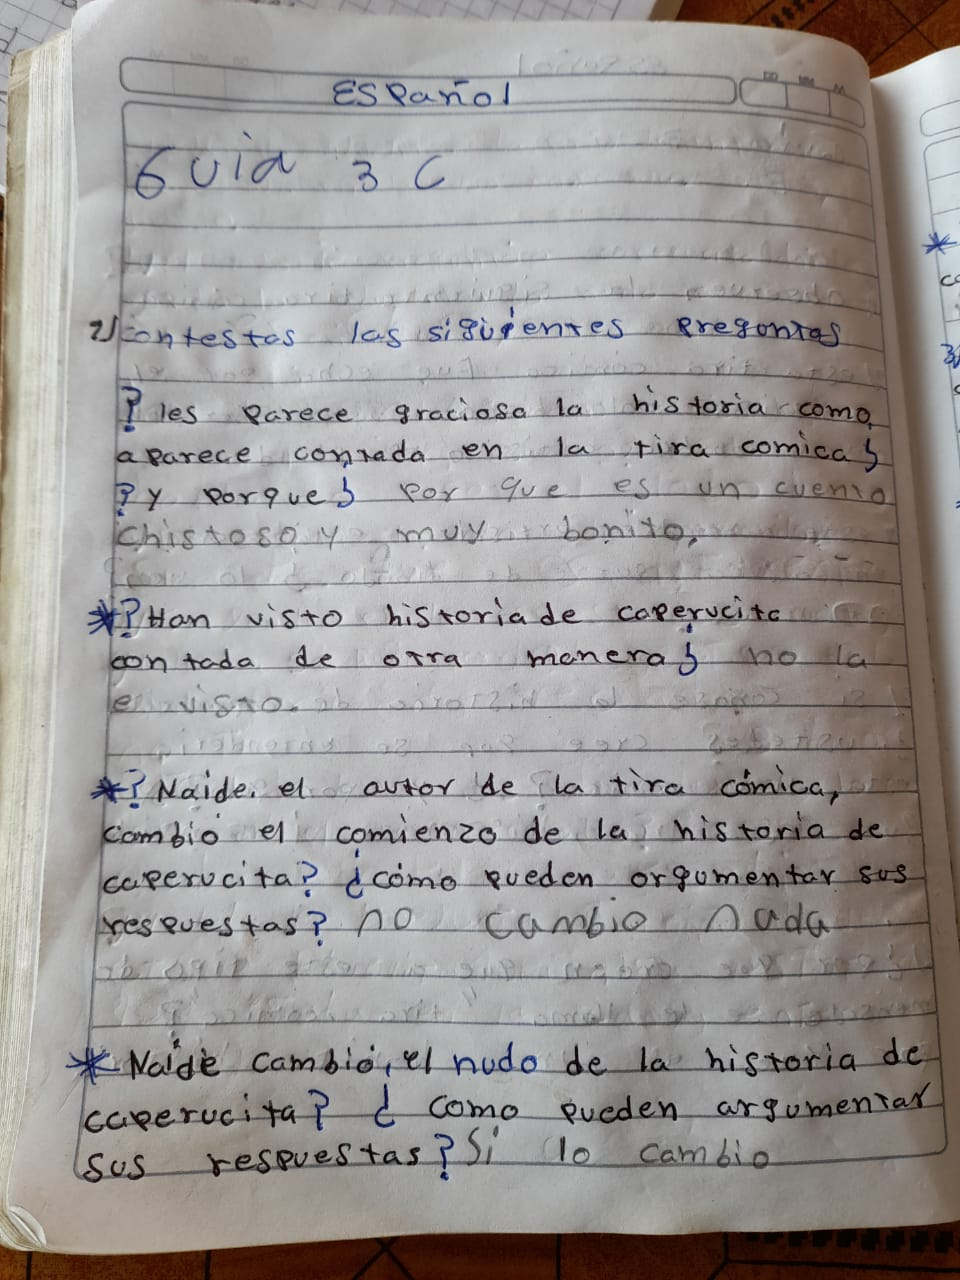 ESPañol
Guia 3 C
2) contestas las siguientes Pregontas
? les Parece graciosa la historia como
aparece contada en la tira comica?
?y porque? Por que es un cuento
chistoso y muy bonito.
*? Han visto historia de caperucita
contada de otra manera? no la
e visto.
*? Naide. el autor de la tira cómica,
cambió el comienzo de la historia de
caperucita? ¿cómo pueden argumentar sus
respuestas? no cambio nada
* Naide cambió, el nudo de la historia de
caperucita? ¿ como pueden argumentar
sus respuestas? Si lo cambio